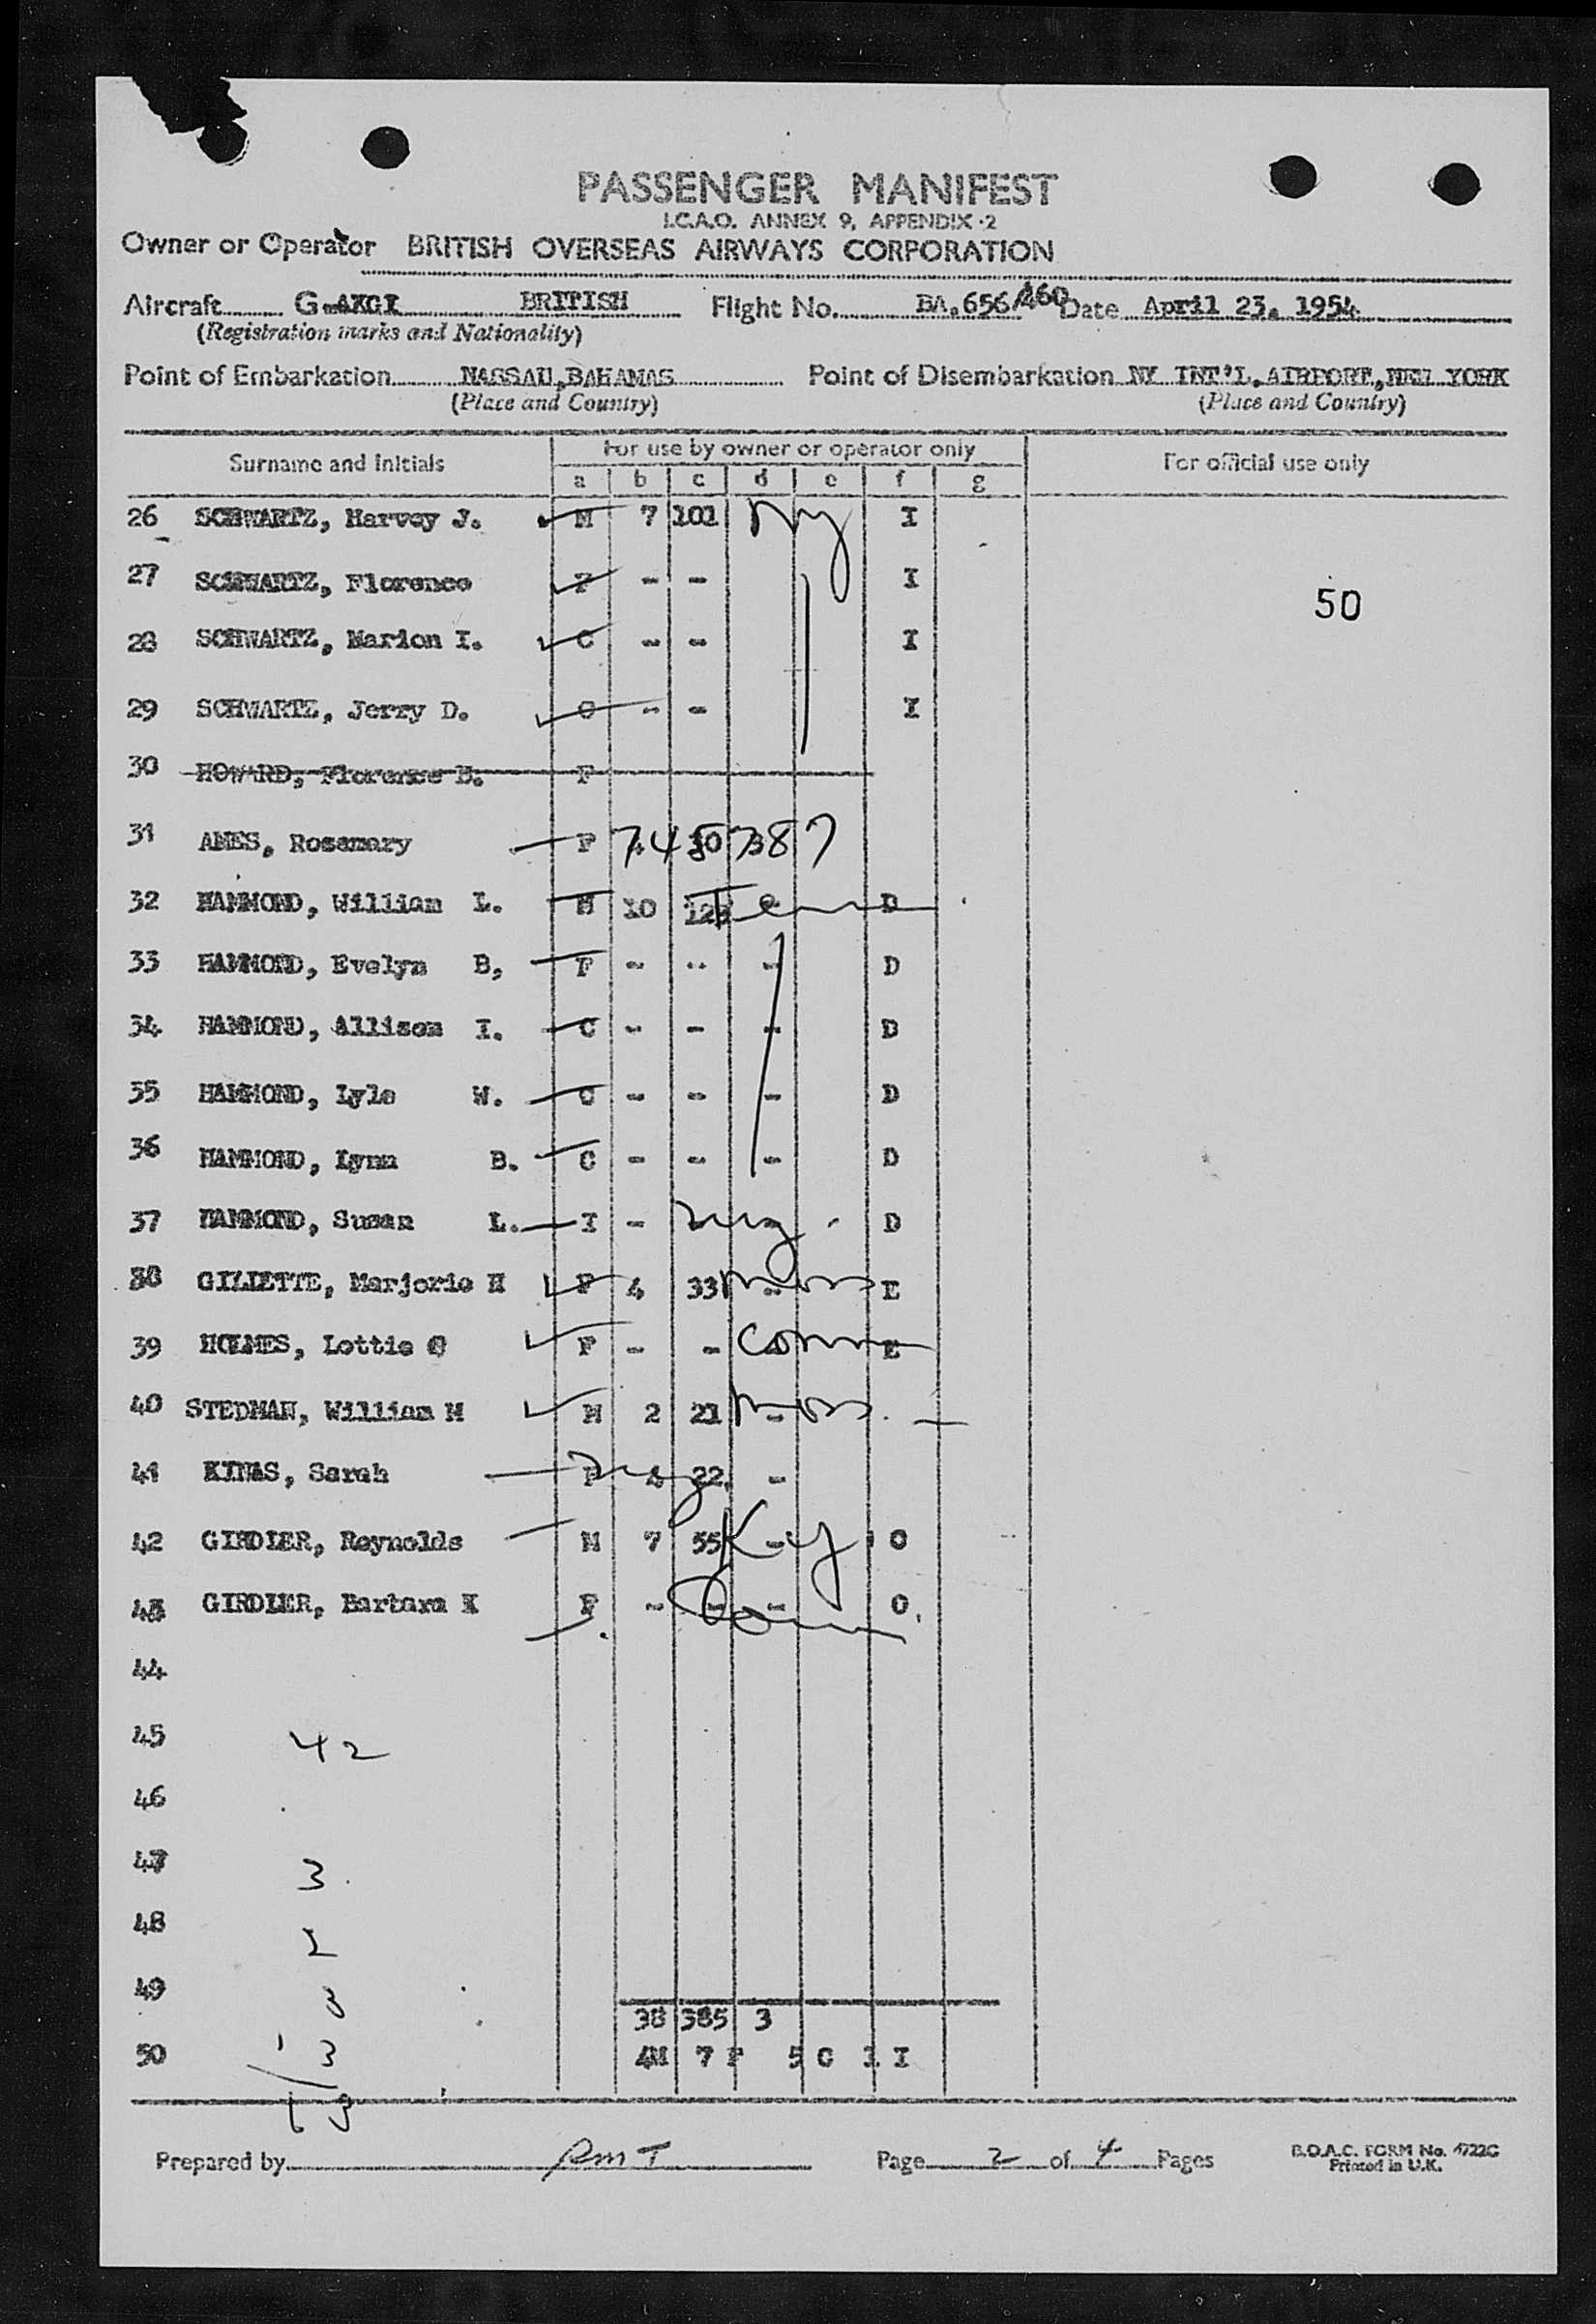 PASSENGER MANIFEST
I.C.A.O. ANNEX 9, APPENDIX 2
Owner or Operator BRITISH OVERSEAS AIRWAYS CORPORATION
Aircraft G-AKGI BRITISH Flight No. BA.656/460 Date April 23. 1954
(Registration marks and Nationality)
Point of Embarkation NASSAU,BAHAMAS Point of Disembarkation NY INT'L.AIRPORT.,NEW YORK
(Place and Country) (Place and Country)
Surname and Initials For use by owner or operator only For official use only
a b c d e f g
26 SCHWARTZ, Harvey J. M 7 101 Ny I
27 SCHWARTZ, Florence F - - I
50
28 SCHWARTZ, Marion I. C - - I
29 SCHWARTZ, Jerry D. C - - I
30 HOWARD, Florence B. F
31 AMES, Rosemary F 7450387
32 HAMMOND, William L. M 10 Tenn D
33 HAMMOND, Evelyn B, F - - - D
34 HAMMOND, Allison I. C - - - D
35 HAMMOND, Lyle W. C - - - D
36 HAMMOND, Lynn B. C - - - D
37 HAMMOND, Susan L. I - ny - D
38 GILLETTE, Marjorie H F 4 33 - E
39 HOLMES, Lottie C F - - Conn E
40 STEDMAN, William M M 2 21 -
41 KINAS, Sarah F 4 22 -
42 GIRDLER, Reynolds M 7 55 Ky O
43 GIRDLER, Barbara K F - - - Conn O.
44
45 42
46
47 3
48 2
49 3
38 385 3
50 3
4M 7 F 5 C 1 I
Prepared by RMT Page 2 of 4 Pages
B.O.A.C. FORM No. 1722C
Printed in U.K.